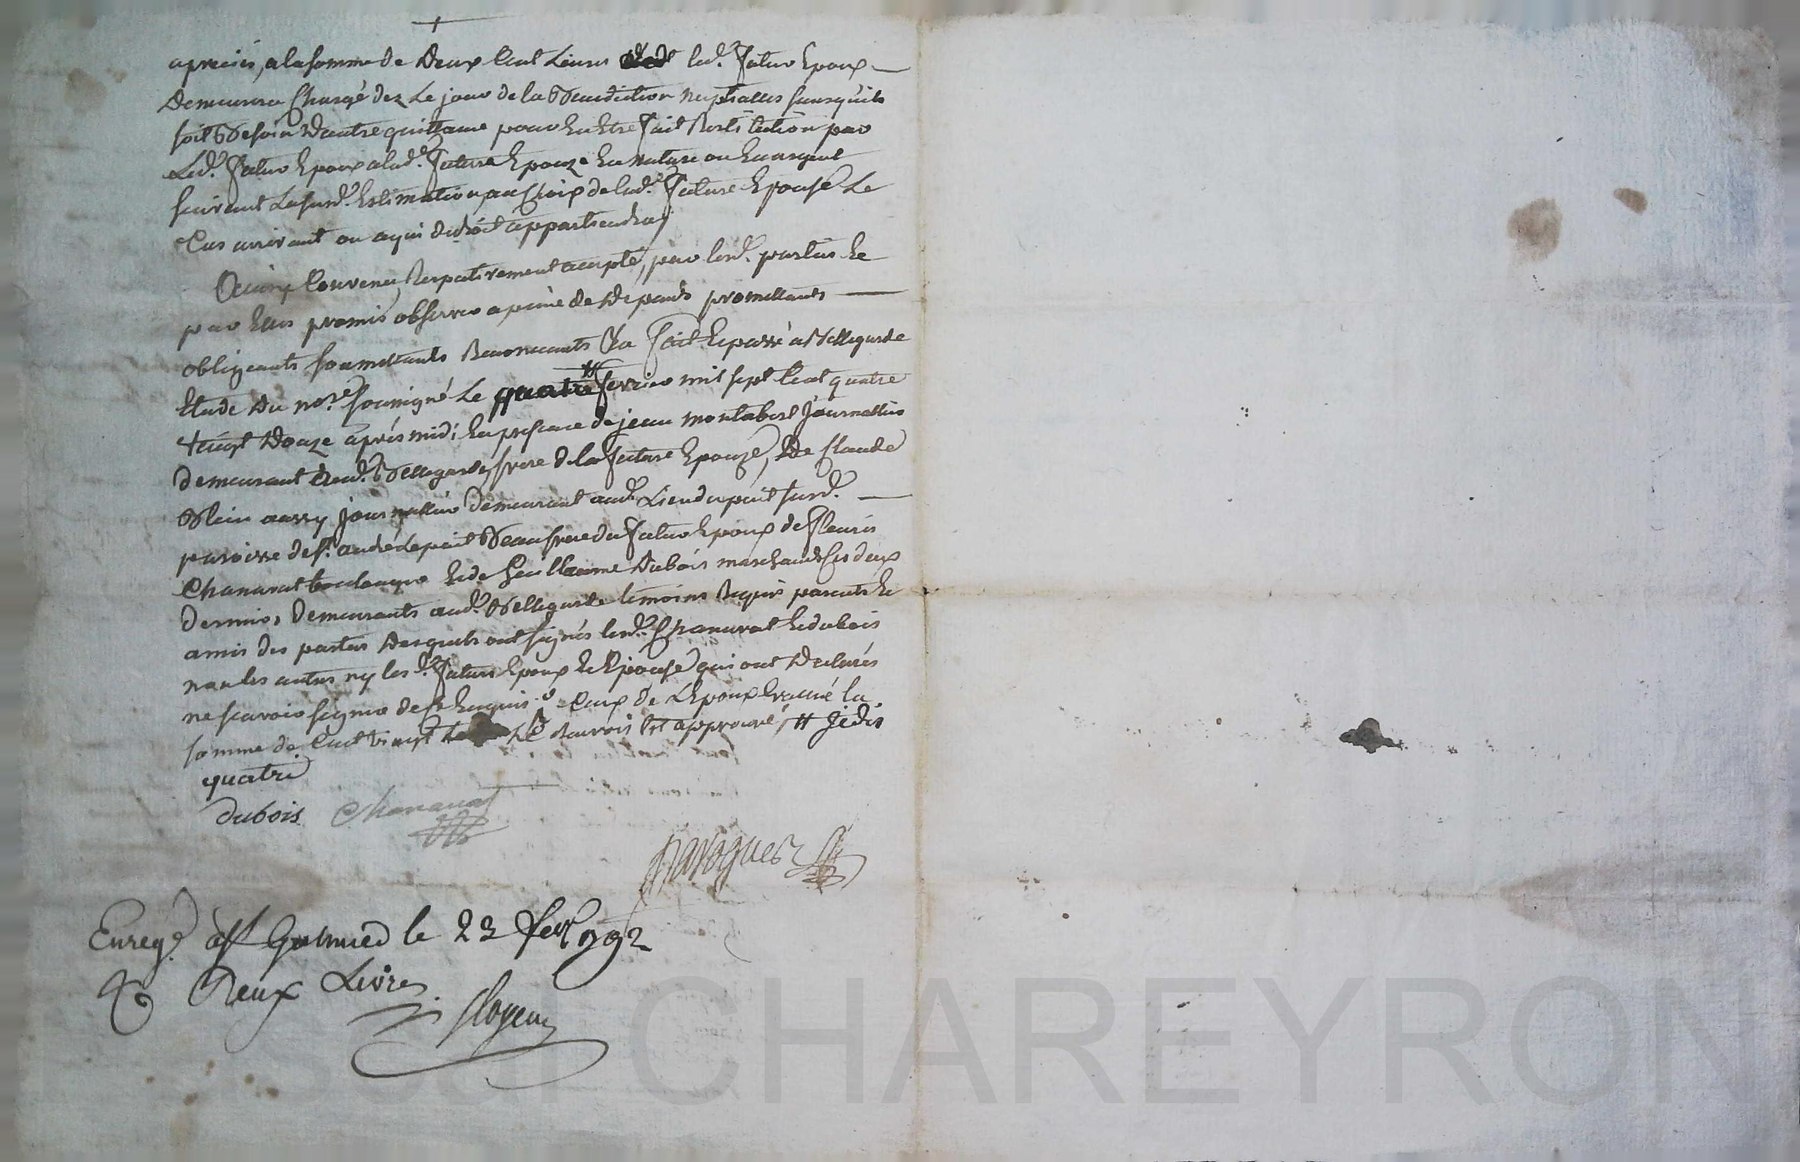 apreciés, a la somme de deux Cent Livres led.t futur Epoux
Demeurera Chargé dez Le jour de la Benediction nuptialles sans qu'ils
soit Besoin d'autre quittance pour En Etre fait Restitution par
Led.t futur Epoux a lad.e future Epouze En nature ou En argent
suivant La susd.e Estimation, au Choix de lad.e future Epouse Le
Cas arrivant ou a qui de droit appartiendra
Ainsy Convenu, Respectivement accepté, par lesd. parties Et
par Elles promis observer a peine de Depends promettants
obligeants soumettants Renonceants &a fait Et passé a Bellegarde
Etude du no.re soussigné Le quatre fevrier mil sept Cent quatre
vingt Douze après midi; En presence de jean montabert Journallier
demeurant aud. Bellegarde, frere de la future Epouze, De Claude
Blein aussy journallier demeurant aud. Lieu du puit susd.
paroisse de s.t andré le puit Beaufrere du futur Epoux de fleuris
Chanavat boulanger Et de Guillaume Dubois marchand Ces deux
dernies, Demeurants aud. Bellegarde temoins Requis parents Et
amis des parties Desquels ont signés lesd. Chanavat Et dubois
non les autres ny lesd. futurs Epoux Et Epouse qui ont Declarés
ne scavoir signer de ce Enquis Ceux de L'Epoux la
somme de Cent vingt approuvé, # Je dis
quatre
dubois Chanavat
Enreg.é a s.t Galmier le 23 fev.r 1792
Deux Livres
CHAREYRON